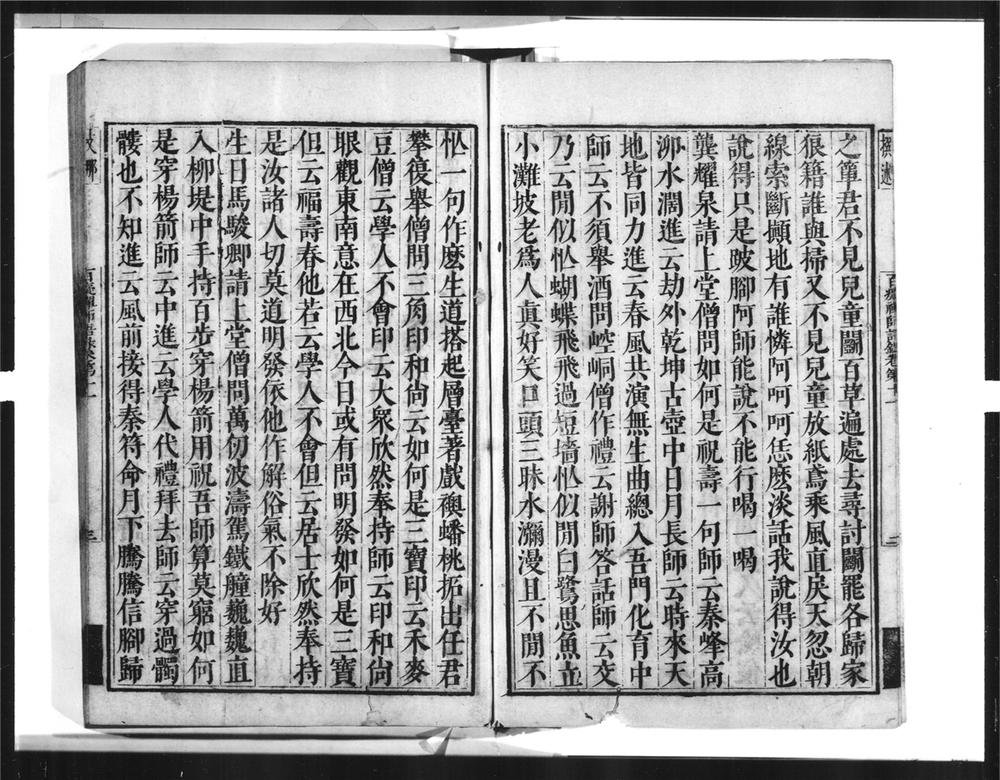 之簞君不見兒童鬭百草遍處去尋討鬭罷各歸家
狼籍誰與掃又不見兒童放紙鳶乘風直戾天忽朝
線索斷攧地有誰憐呵呵呵恁麽淡話我說得汝也
說得只是跛腳阿師能說不能行喝一喝
龔耀泉請上堂僧問如何是祝壽一句師云秦峰高
泖水濶進云劫外乾坤古壺中日月長師云時來天
地皆同力進云春風共演無生曲總入吾門化育中
師云不須舉酒問崆峒僧作禮云謝師答話師云交
乃云閒似忙蝴蝶飛飛過短墻忙似閒白鷺思魚立
小灘坡老爲人真好笑口頭三昧水瀰漫且不閒不
忙一句作麽生道搭起層臺著戲襖蟠桃拓出任君
攀復舉僧問三角印和尚云如何是三寶印云禾麥
豆僧云學人不會印云大衆欣然奉持師云印和尚
眼觀東南意在西北今日或有問明發如何是三寶
但云福壽春他若云學人不會但云居士欣然奉持
是汝諸人切莫道明發依他作解俗氣不除好
生日馬駿卿請上堂僧問萬仞波濤駕鐵艟巍巍直
入柳堤中手持百步穿楊箭用祝吾師算莫窮如何
是穿楊箭師云中進云學人代禮拜去師云穿過髑
髏也不知進云風前接得秦符命月下騰騰信腳歸